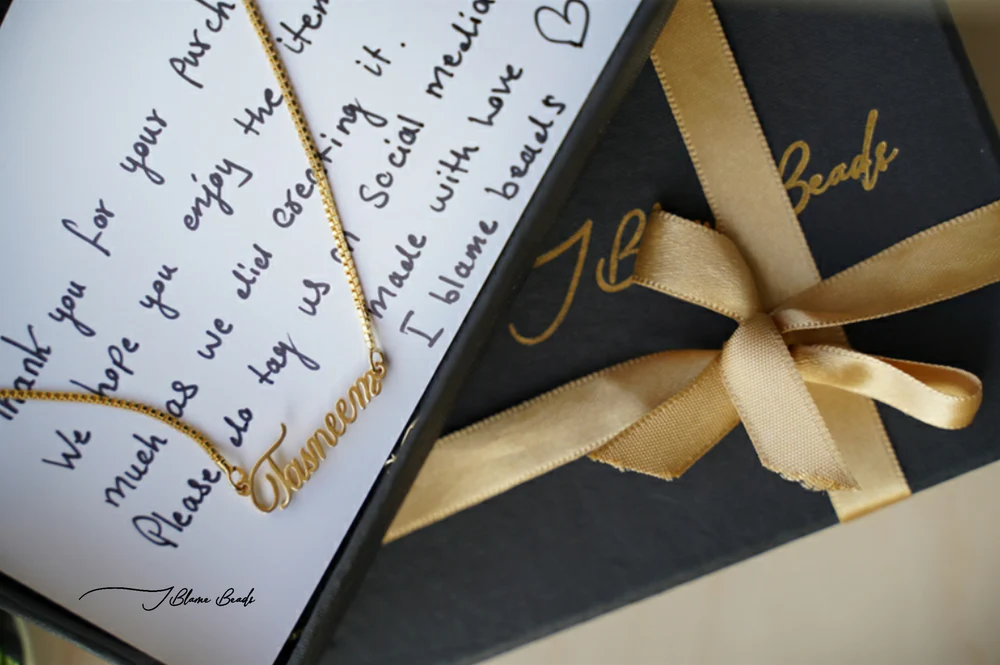 Thank you for your purch
We hope you enjoy the item
much as we did creating it.
Please do tag us on Social media
made with Love
I blame beads
Tasneem
I Blame Beads
I B Beads